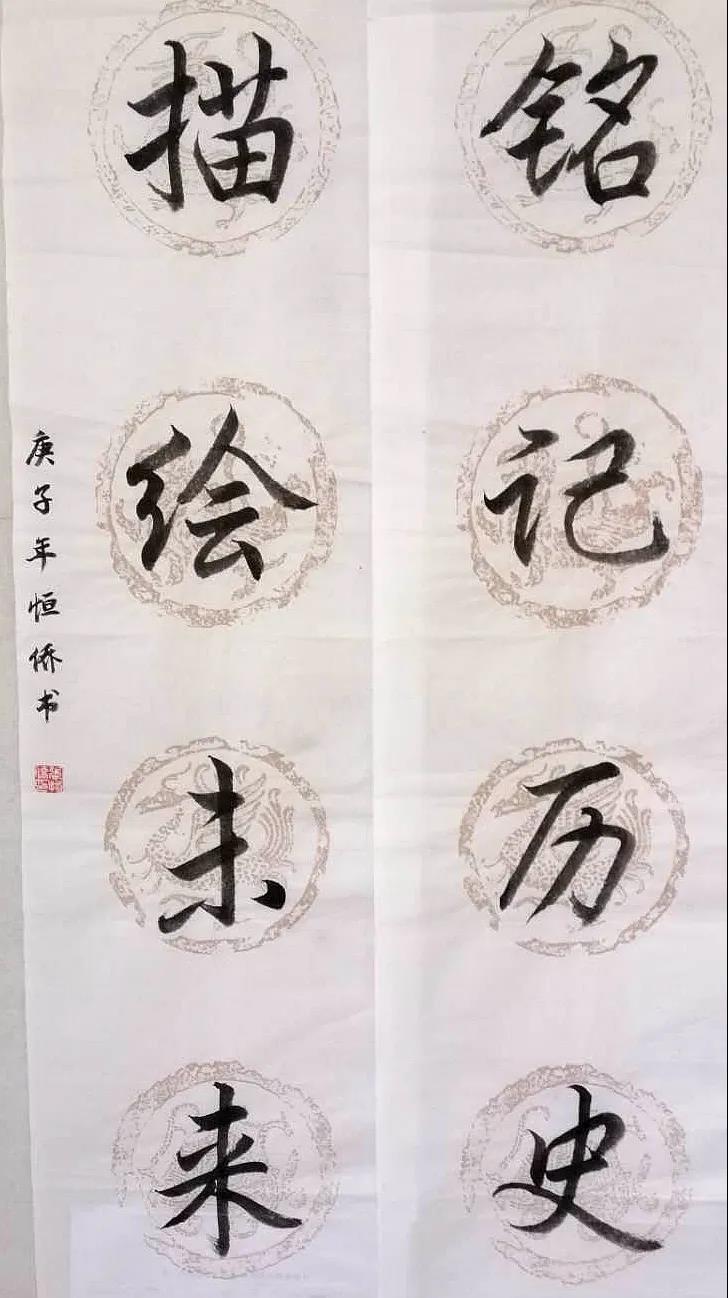 铭记历史
描绘未来
庚子年恒侨书